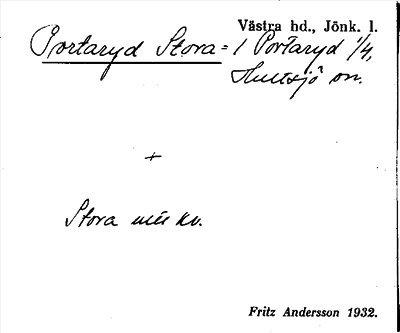 Västra hd., Jönk. l.
Portaryd Stora = 1 Portaryd 1/4,
Hultsjö sn.
+
Stora kv.
Fritz Andersson 1932.